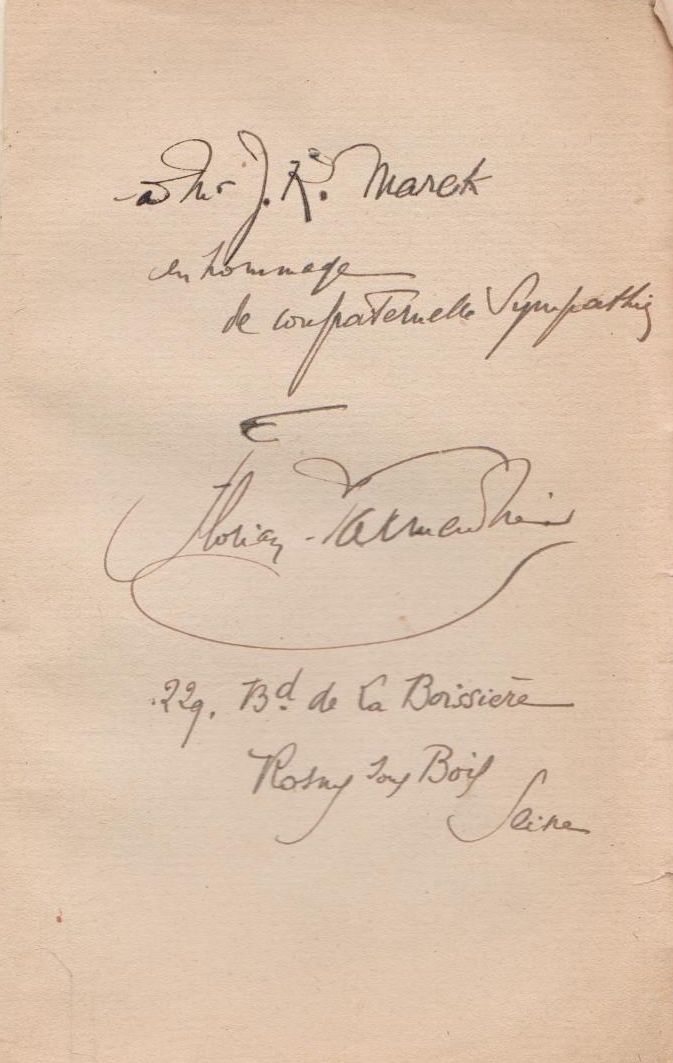 à Mr J. R. Marek
en hommage
de confraternelle Sympathie
Florian-Parmentier
229, Bd de La Boissière
Rosny sous Bois
Seine